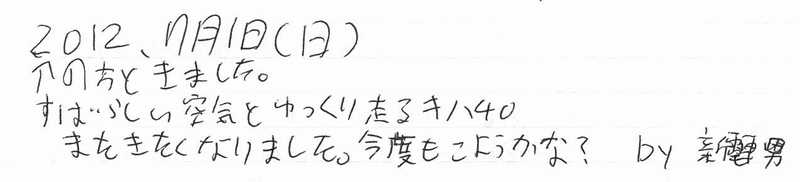 2012、7月1日(日)
穴の方ときました。
すばらしい空気とゆっくり走るキハ40
またきたくなりました。今度もこようかな? by 新電男